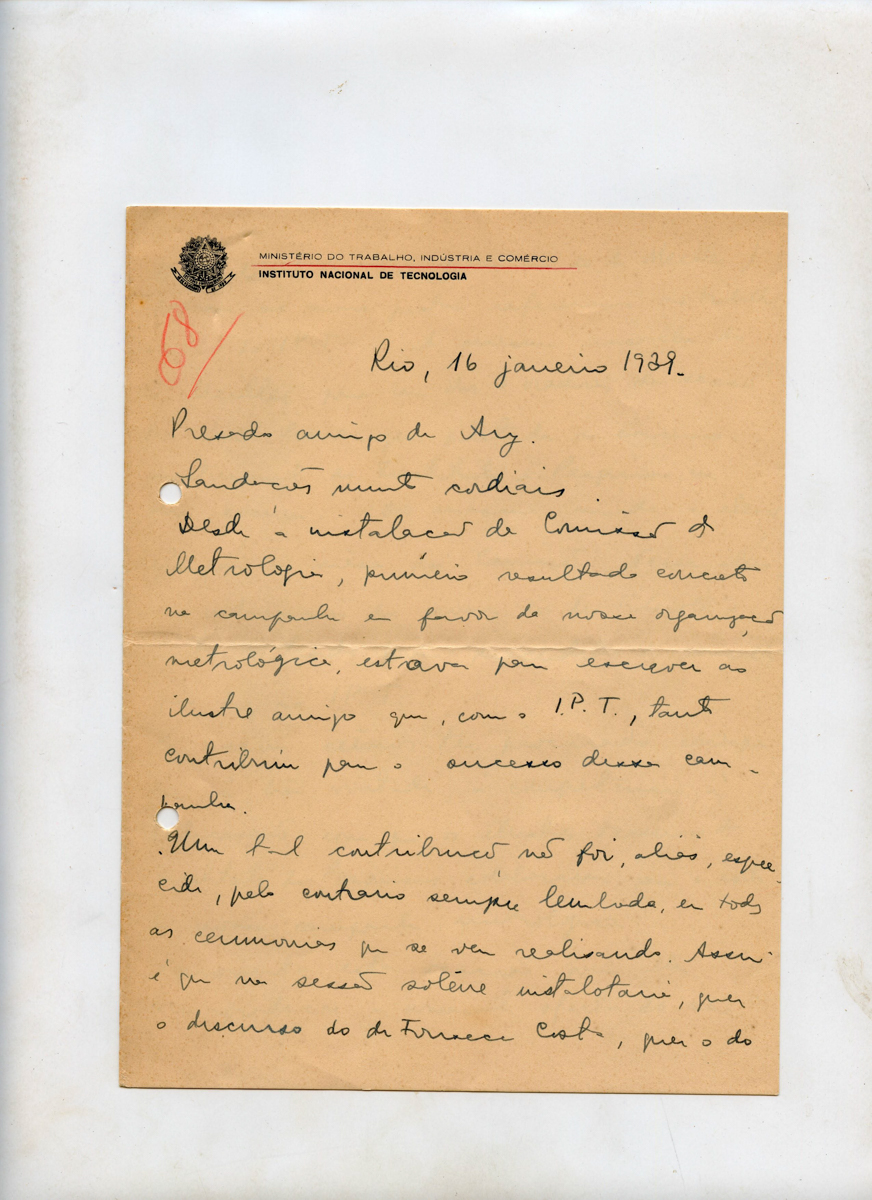 MINISTÉRIO DO TRABALHO, INDÚSTRIA E COMÉRCIO
INSTITUTO NACIONAL DE TECNOLOGIA
68
Rio, 16 janeiro 1939.
Presado amigo dr Ary.
Saudações muito cordiais.
Desde a instalação da Comissão de
Metrologia, primeiro resultado concreto
na campanha em favor da nossa organização
metrológica, estava para escrever ao
ilustre amigo que, com o I.P.T., tanto
contribuiu para o sucesso dessa cam-
panha.
Uma tal contribuição não foi, aliás, esque-
cida, pelo contrario sempre lembrada, em todas
as ceremonias que se vem realisando. Assim
é que na sessão solene instalatoria, quer
o discurso do dr Fonseca Costa, quer o do